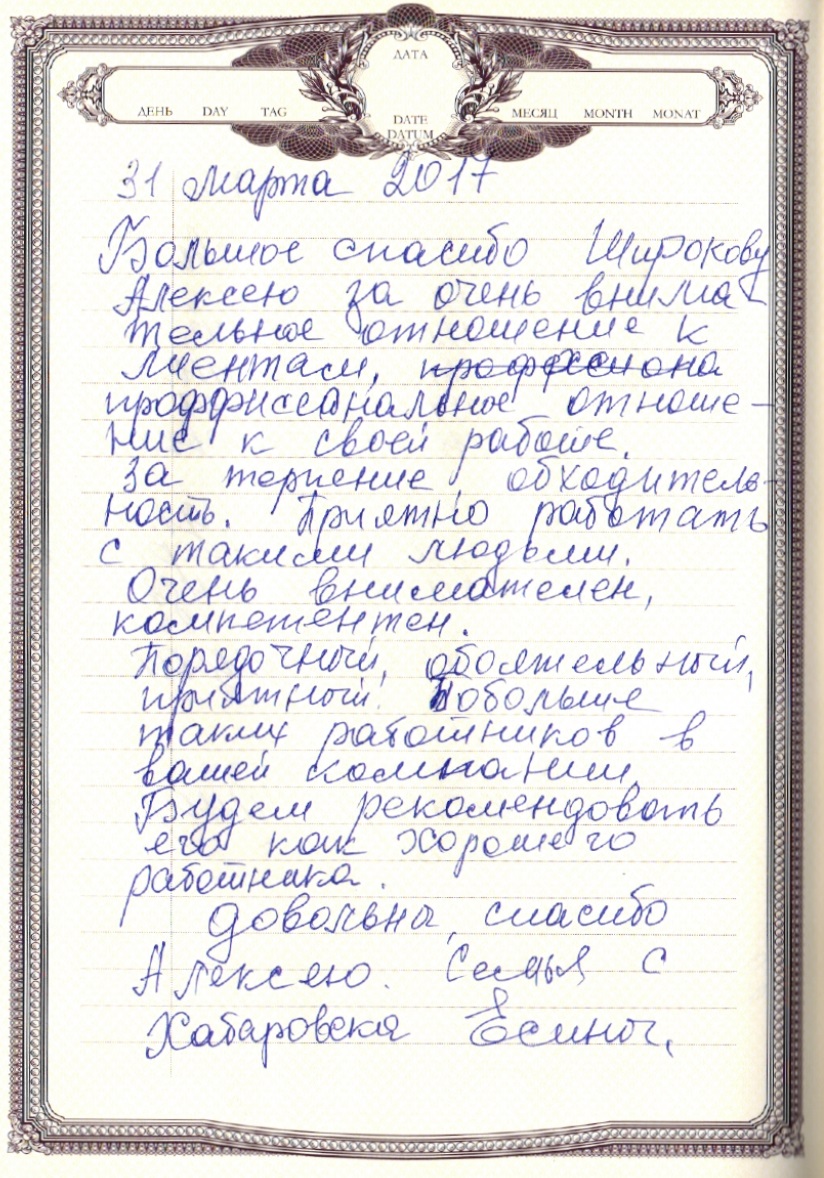 ДАТА
ДЕНЬ DAY TAG
DATE
DATUM
МЕСЯЦ MONTH MONAT
31 марта 2017
Большое спасибо Широкову
Алексею за очень внима-
тельное отношение к
лиентам, профессиона
проффисеональное отноше-
ние к своей работе.
За терпение обходитель-
ность. Приятно работать
с такими людьми.
Очень внимателен,
компетентен.
Порядочный, обоятельный,
приятный. Побольше
таких работников в
вашей компании
Будем рекомендовать
его как хорошего
работника.
довольны, спасибо
Алексею. Семья с
Хабаровска Есины.